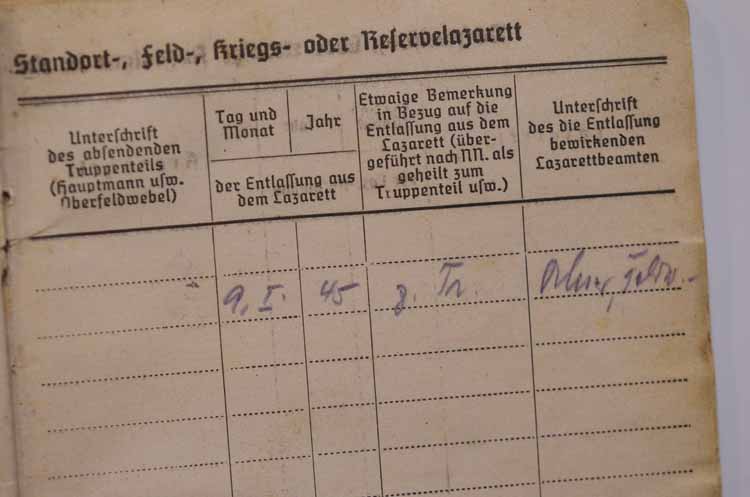 Standort-, Feld-, Kriegs- oder Reservelazarett
Unterschrift
des absendenden
Truppenteils
(Hauptmann usw.
Oberfeldwebel)
Tag und
Monat
Jahr
der Entlassung aus
dem Lazarett
Etwaige Bemerkung
in Bezug auf die
Entlassung aus dem
Lazarett (über-
geführt nach NN. als
geheilt zum
Truppenteil usw.)
Unterschrift
des die Entlassung
bewirkenden
Lazarettbeamten
9. I. 45 z. Tr.